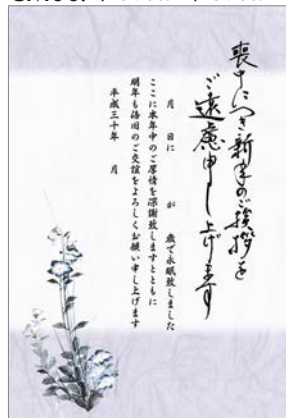 喪中につき新年のご挨拶を
ご遠慮申し上げます
月 日に が 歳で永眠致しました
ここに本年中のご厚情を深謝致しますとともに
明年も倍旧のご交誼をよろしくお願い申し上げます
平成三十年 月